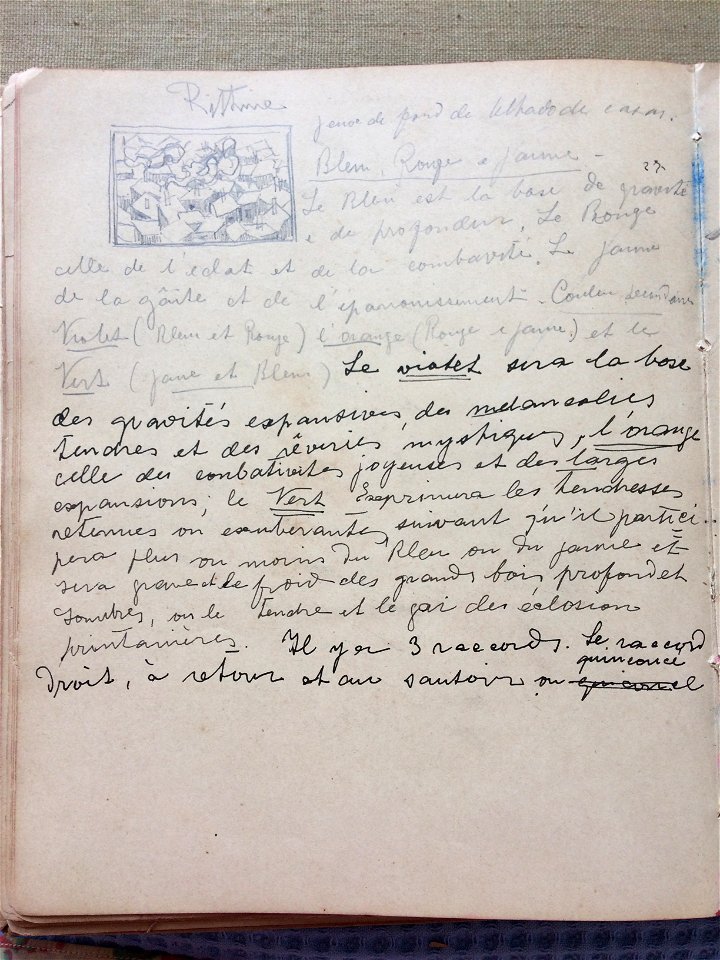 Rithme
jeux de fond de telhado de casas.
Bleu, Rouge e jaune -
Le Bleu est la base de gravité
e de profondeur. Le Rouge
celle de l'éclat et de la combavité. Le jaune
de la gâité et de l'epanouissement. Couleur secundaire
Violet (Bleu et Rouge) l'orange (Rouge e jaune.) et le
Vert (jaune et Bleu) Le violet sera la base
des gravités expansives, des melancolies
tendres et des rêveries mystiques, l'orange
celle des combativites joyeuses et des larges
expansions, le Vert Exprimera les tendresses
retenues ou exuberantes, suivant qu'il partici-
pera plus ou moins du Bleu ou du jaune et
sera grave et le froid des grands bois profond et
sombres, ou le tendre et le gai des éclosion
printanières. Il y a 3 raccords. Le raccord
quinconce
droit, à retour et au sautoir ou